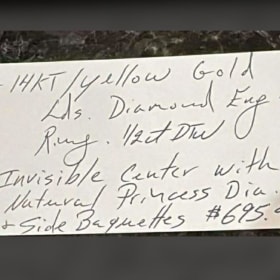 - 14KT/yellow Gold
Lds. Diamond Eng.
Ring. 1/2ct DTW
Invisible Center with
Natural Princess Dia
+ Side Baguettes $695.